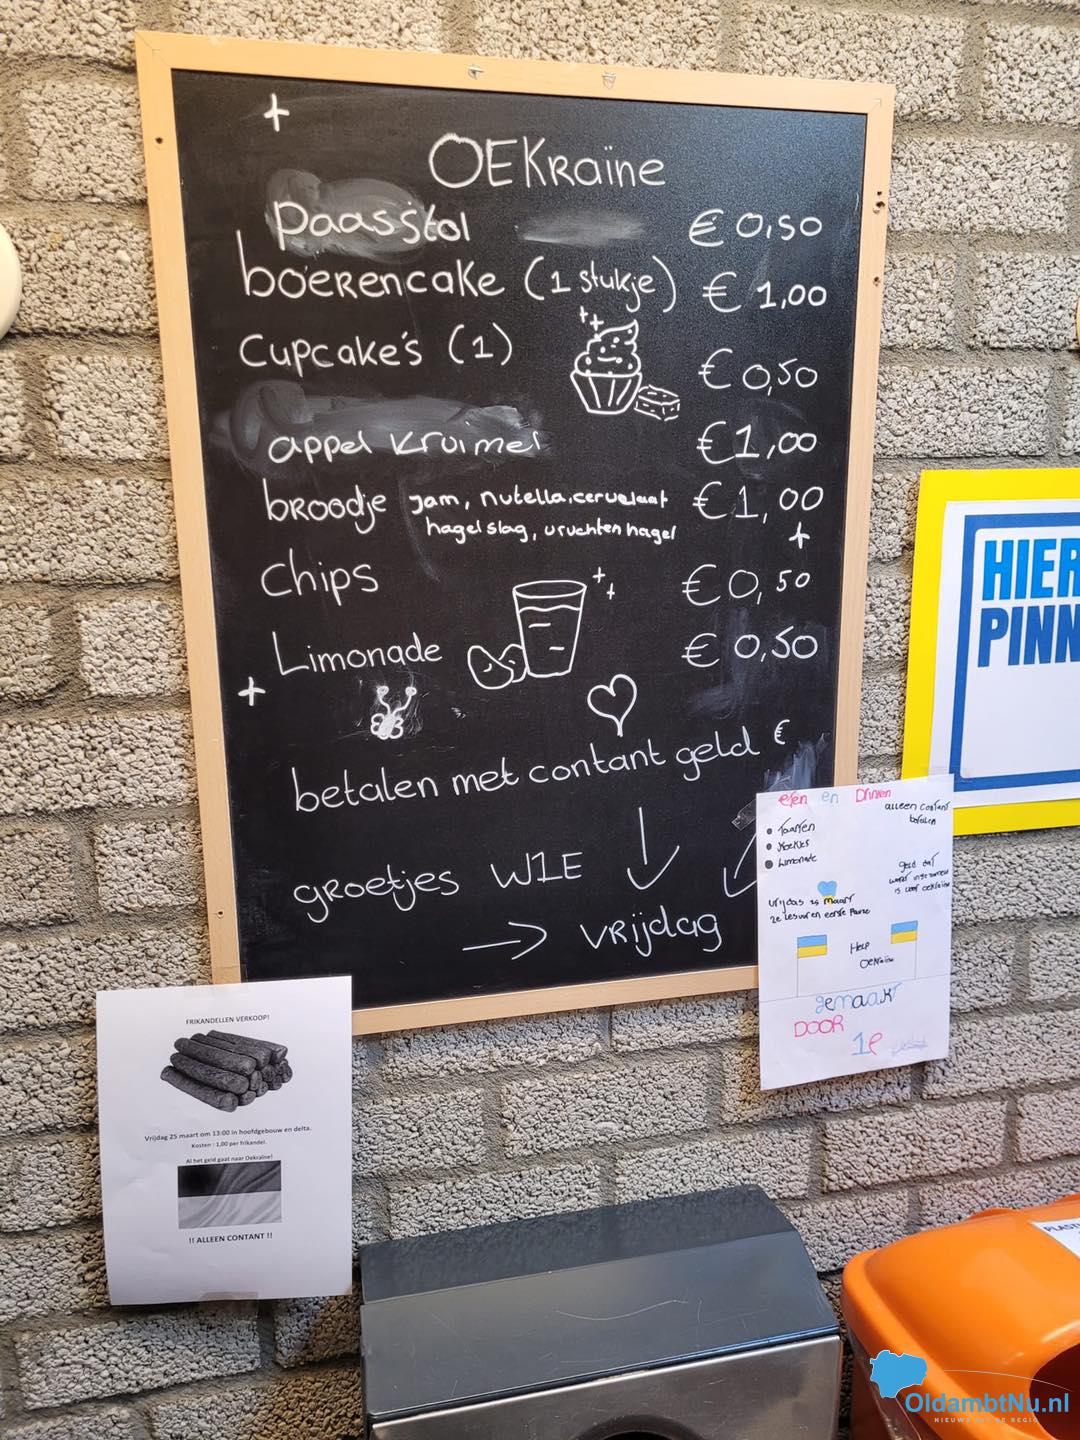 OEKraïne
Paasstol € 0,50
boerencake (1 stukje) € 1,00
Cupcake's (1) € 0,50
appel kruimel € 1,00
broodje jam, nutella, cervelaat € 1,00
hagelslag, vruchtenhagel
Chips € 0,50
Limonade € 0,50
betalen met contant geld €
groetjes W1E
→ vrijdag
HIER
PINN
eten en Drinken
alleen contant
betalen
• Taarten
• Koekjes
• Limonade
geld dat
word ingezameld
is voor oekraïne
vrijdag 25 maart
2e lesuur en eerste Pauze
Help
Oekraïne
gemaakt
DOOR
1e
FRIKANDELLEN VERKOOP!
Vrijdag 25 maart om 13:00 in hoofdgebouw en delta.
Kosten : 1,00 per frikandel.
Al het geld gaat naar Oekraïne!
!! ALLEEN CONTANT !!
OldambtNu.nl
NIEUWS UIT DE REGIO